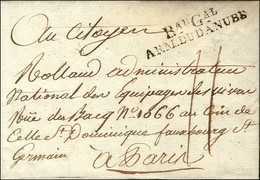 Au Citoyen
BAU GAL
ARM. DU DANUBE
Rolland administrateur
National des Equipages des vivres
Rue du Bacq N° 1666 au Coin de
Celle St Dominique fauxbourg St
Germain
à Paris